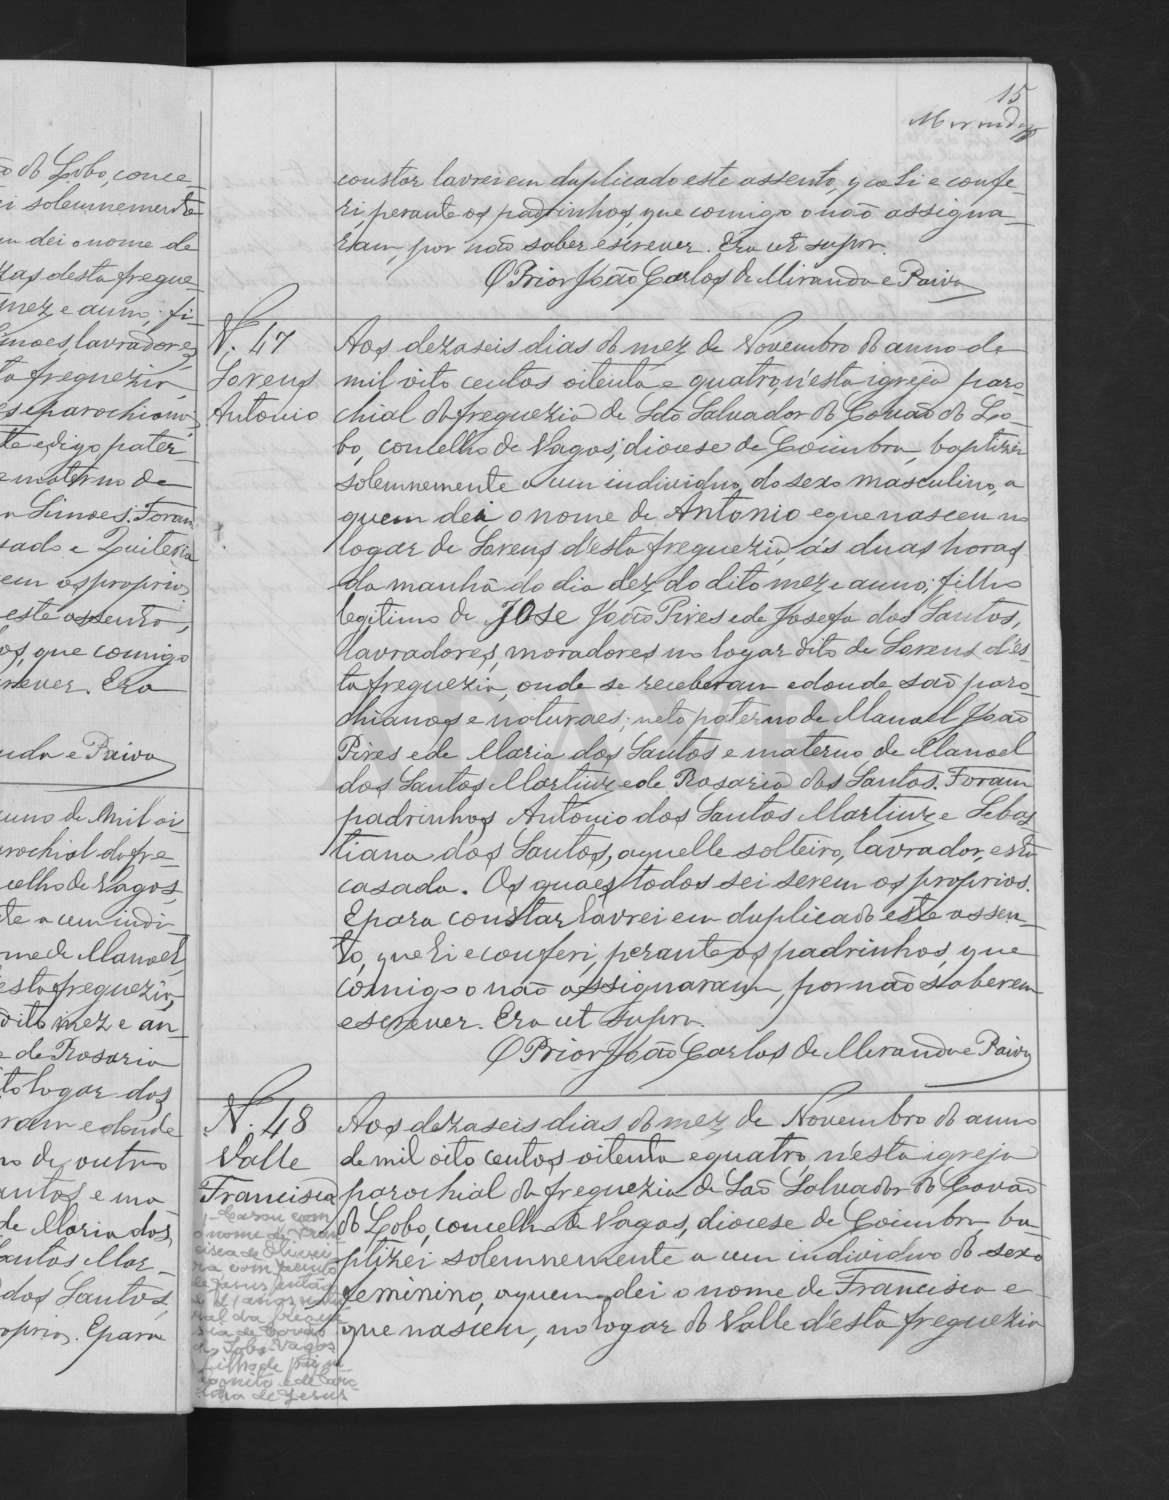 15
Miranda
constar lavrei em duplicado este assento, que li e confe-
ri, perante os padrinhos, que comigo o não assigna-
ram, por não saber escrever. Era ut supra.
O Prior João Carlos de Miranda e Paiva
N. 47
Lorens
Antonio
Aos dezaseis dias do mez de Novembro do anno de
mil oito centos oitenta e quatro, n'esta igreja paro-
chial da freguezia de São Salvador do Covão do Lo-
bo, concelho de Vagos, diocese de Coimbra, baptizei
solemnemente a um individuo do sexo masculino, a
quem dei o nome de Antonio e que nasceu no
logar de Lorens d'esta freguezia, ás duas horas
da manhã do dia dez do dito mez e anno; filho
legitimo de José João Pires e de Josefa dos Santos,
lavradores, moradores no logar dito de Lorens d'es-
ta freguezia, onde se receberam e donde são paro-
chianos e naturaes; neto paterno de Manoel João
Pires e de Maria dos Santos e materno de Manoel
dos Santos Martins e de Rosaria dos Santos. Foram
padrinhos Antonio dos Santos Martins e Sebas-
tiana dos Santos, aquelle solteiro, lavrador, esta
casada. Os quaes todos sei serem os proprios.
E para constar lavrei em duplicado este assen-
to, que li e conferi, perante os padrinhos, que
comigo o não assignaram, por não saberem
escrever. Era ut supra.
O Prior João Carlos de Miranda e Paiva
N. 48
Valle
Francisca
Casou com
o nome de Fran-
cisca de Olivei-
ra com
de Jesus
de annos
ral da fregue-
sia de Covão
do Lobo-Vagos
filho de pai in-
cognito e de
de Jesus
Aos dezaseis dias do mez de Novembro do anno
de mil oito centos oitenta e quatro, n'esta igreja
parochial da freguezia de São Salvador do Covão
do Lobo, concelho de Vagos, diocese de Coimbra, ba-
ptizei solemnemente a um individuo do sexo
feminino, a quem dei o nome de Francisca e
que nasceu, no logar do Valle d'esta freguezia
ão do Lobo, conce-
ei solemnemente
em dei o nome de
desta fregue-
mez e anno; fi-
Simoes, lavradores,
ta freguezia,
parochianos
te e digo pater-
e materno de
Simoes. Foram
sado e Quiteria
em os proprios.
este assento,
os, que comigo
crever. Era
nda e Paiva
nno de mil oi-
rochial da fre-
celho de Vagos,
te a um indi-
me de Manoel,
esta freguezia,
dito mez e an-
e de Rosaria
to logar dos
ram e donde
no de outro
antos e ma-
de Maria dos
Santos Mar-
dos Santos,
oprios. E para